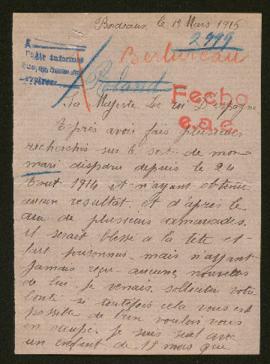 Bordeaux, le 19 Mars 1916
2999
Berbureau
Roland
Fecho
Sa Majesté Le roi D'Espagne
Après avoir fais plusieurs
recherches sur le sort de mon
mari disparu depuis le 24
Aout 1914 et n'ayant obtenu
aucun resultat, et d'après le
dire de plusieurs camarades
il serait blessé a la tête et
fait prisonnier mais n'ayant
jamais reçu aucune nouvelles
de lui je venais solliciter votre
bonté si toutefois cela vous est
possible de bien vouloir vous
en occupé. Je suis seul avec
un enfant de 18 mois que